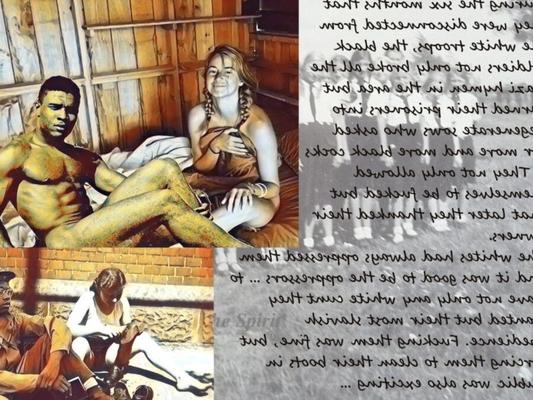 uring the six months that
hey were disconnected from
he white troops, the black
oldiers not only broke all the
azi hymen in the area but
urned their prisoners into
egenerate sows who asked
or more and more black cocks
They not only allowed
hemselves to be fucked but
hat later they thanked their
wners.
he whites had always oppressed them
nd it was good to be the oppressors ... to
ave not only any white cunt they
anted but their most slavish
bedience. Fucking them was fine, but
orcing them to clean their boots in
ublic was also exciting ...
he Spirit